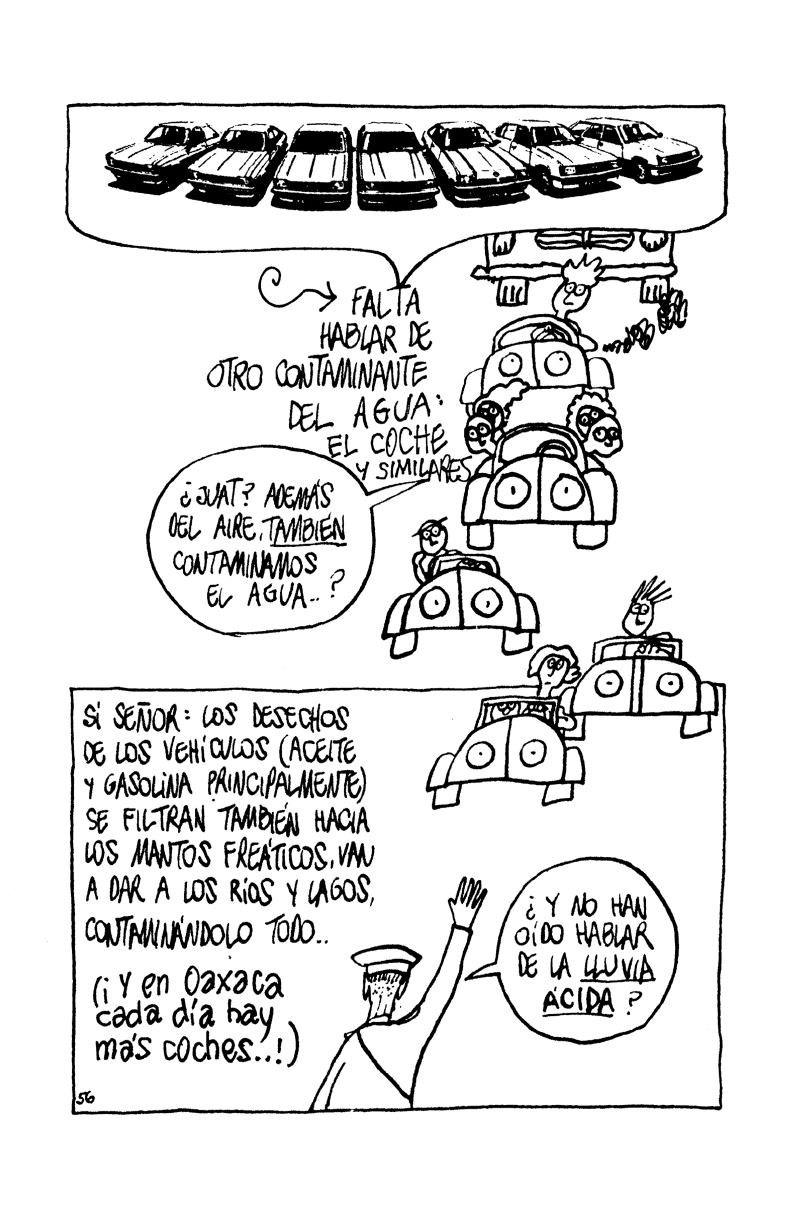 FALTA
HABLAR DE
OTRO CONTAMINANTE
DEL AGUA:
EL COCHE
Y SIMILARES
¿JUAT? ADEMÁS
DEL AIRE, TAMBIÉN
CONTAMINAMOS
EL AGUA..?
SÍ SEÑOR: LOS DESECHOS
DE LOS VEHÍCULOS (ACEITE
Y GASOLINA PRINCIPALMENTE)
SE FILTRAN TAMBIÉN HACIA
LOS MANTOS FREÁTICOS, VAN
A DAR A LOS RÍOS Y LAGOS,
CONTAMINÁNDOLO TODO..
(¡Y en Oaxaca
cada día hay
más coches..!)
¿Y NO HAN
OÍDO HABLAR
DE LA LLUVIA
ÁCIDA?
56